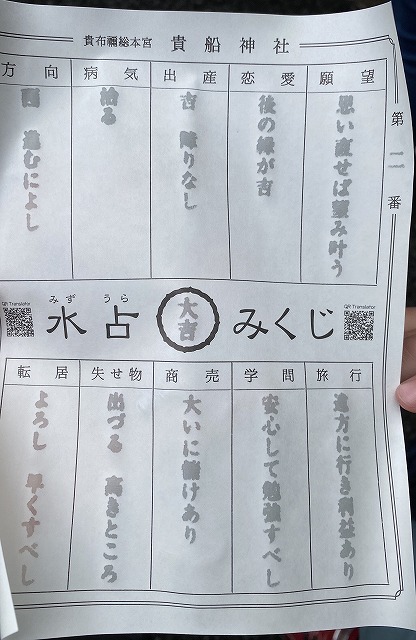 貴布禰総本宮 貴船神社
第二番
願望
思い直せば望み叶う
恋愛
後の縁が吉
出産
吉 障りなし
病気
治る
方向
酉 進むによし
QR Translator
みずうら
水占
大吉
みくじ
QR Translator
旅行
遠方に行き利益あり
学問
安心して勉強すべし
商売
大いに儲けあり
失せ物
出づる 高きところ
転居
よろし 早くすべし